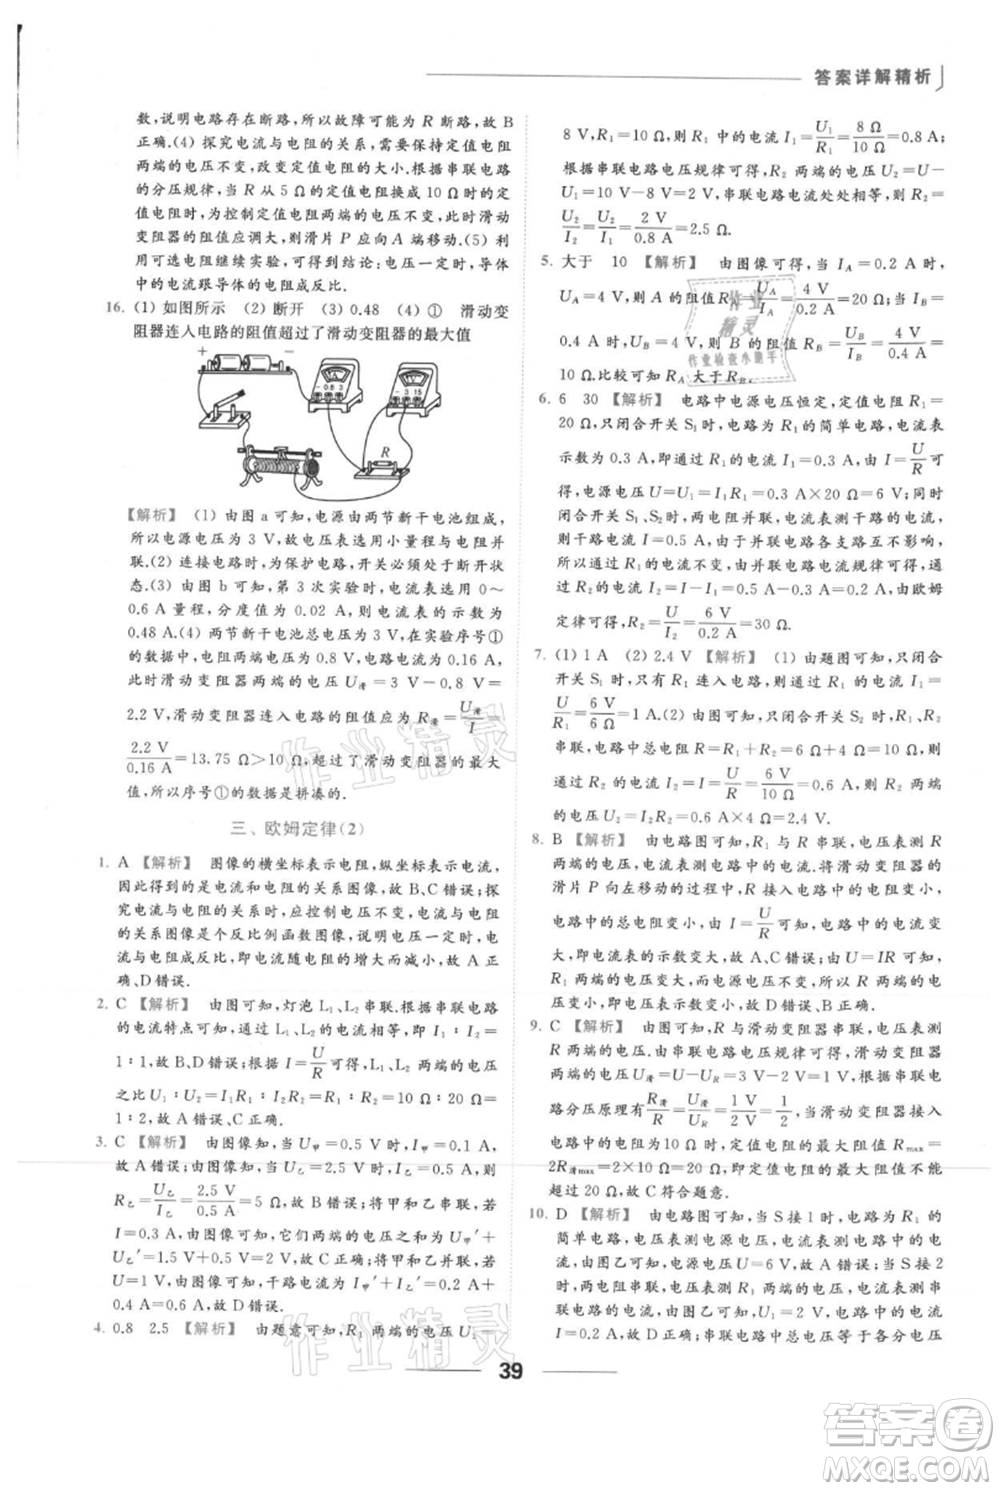 答案详解精析
数,说明电路存在断路,所以故障可能为 R 断路,故 B
正确.(4) 探究电流与电阻的关系,需要保持定值电阻
两端的电压不变,改变定值电阻的大小.根据串联电路
的分压规律,当实验中从 5 Ω 的定值电阻换成 10 Ω 的定
值电阻时,为控制定值电阻两端的电压不变,此时滑动
变阻器的阻值应调大,则滑片 P 应向 A 端移动.(5) 利
用可选电阻继续实验,可得到结论:电压一定时,导体中
的电流跟导体的电阻成反比.
16. (1) 如图所示 (2) 断开 (3) 0.48 (4) ① 滑动变
阻器连入电路的阻值超过了滑动变阻器的最大值
R
【解析】 (1) 由图 a 可知,电源由两节新干电池组成,
所以电源电压为 3 V,故电压表用小量程与电阻并
联.(2) 连接电路时,为保护电路,开关必须处于断开状
态.(3) 由图 b 可知,第 3 次实验时,电流表选用 0～
0.6 A 量程,分度值为 0.02 A,则电流表的示数为
0.48 A.(4) 两节新干电池总电压为 3 V,在实验序号①
的数据中,电阻两端电压为 0.8 V,电流为 0.16 A,
此时滑动变阻器两端的电压为 U滑=3 V-0.8 V=
2.2 V,滑动变阻器连入电路的阻值应为 R滑=U滑/I=
2.2 V/0.16 A=13.75 Ω>10 Ω,超过了滑动变阻器的最大
值,所以序号①的数据是拼凑的.
三、欧姆定律(2)
1. A 【解析】 图像的横坐标表示电阻,纵坐标表示电流,
因此得到的是电流和电阻的关系,故 B、C 错误;探
究电流与电阻的关系时,应控制电压不变,电流与电阻
的关系图像是个反比例函数图像,说明电压一定时,电
流与电阻成反比,即电流随电阻的增大而减小,故 A 正
确、D 错误.
2. C 【解析】 由图可知,灯泡 L₁、L₂ 串联,根据串联电路
的电流特点可知,通过 L₁、L₂ 的电流相等,即 I₁∶I₂=
1∶1,故 B、D 错误;根据 I=U/R可得,L₁、L₂ 两端电压
之比 U₁∶U₂=I₁R₁∶I₂R₂=R₁∶R₂=10 Ω∶20 Ω=
1∶2,故 A 错误、C 正确.
3. C 【解析】 由图像知,当 U甲=0.5 V 时,I甲=0.1 A,
故 A 错误;由图像知,当 U乙=2.5 V 时,I乙=0.5 A,则
R乙=U乙/I乙=2.5 V/0.5 A=5 Ω,故 B 错误;将甲和乙串联,若
I=0.3 A,则由图像知,它们两端的电压为 U甲′+
U乙′=1.5 V+0.5 V=2 V,故 C 正确;将甲和乙并联,若
U=1 V,则由图像知,干路电流为 I甲′+I乙′=0.2 A+
0.4 A=0.6 A,故 D 错误.
4. 0.8 2.5 【解析】 由题意可知,R₁ 两端的电压 U₁=
8 V,R₁=10 Ω,则 R₁ 中的电流 I₁=U₁/R₁=8 Ω/10 Ω=0.8 A;
根据串联电路电压规律可得,R₂ 两端的电压 U₂=U-
U₁=10 V-8 V=2 V,串联电路电流处处相等,则 R₂=
U₂/I₂=U₂/I₁=2 V/0.8 A=2.5 Ω.
5. 大于 10 【解析】 由图像可得,当 I_A=0.2 A 时,
U_A=4 V,则 A 的阻值R_A=U_A/I_A=4 V/0.2 A=20 Ω;当 I_B=
0.4 A 时,U_B=4 V,则 B 的阻值 R_B=U_B/I_B=4 V/0.4 A=
10 Ω.比较可知 R_A 大于 R_B.
6. 6 30 【解析】 电路中电源电压恒定,定值电阻 R₁=
20 Ω,只闭合开关 S₁时,电路为 R₁ 的简单电路,电流表
示数为 0.3 A,即通过 R₁ 的电流 I₁=0.3 A,由 I=U/R可
得,电源电压 U=U₁=I₁R₁=0.3 A×20 Ω=6 V;同时
闭合开关 S₁、S₂时,两电阻并联,电流表测干路的电流,
则干路电流 I=0.5 A,由于并联电路各支路互不影响,
所以通过 R₂ 的电流 I₂=I-I₁=0.5 A-0.3 A=0.2 A,由欧姆
定律可得,R₂=U/I₂=6 V/0.2 A=30 Ω.
7. (1) 1 A (2) 2.4 V 【解析】 (1) 由题图可知,只闭合
开关 S₁ 时,只有 R₁ 连入电路,则通过 R₁ 的电流 I₁=
U/R₁=6 V/6 Ω=1 A.(2) 由图可知,只闭合开关 S₂ 时,R₁、R₂
串联,电路中总电阻为 R=R₁+R₂=6 Ω+4 Ω=10 Ω,则
通过 R₂ 的电流 I₂=I=U/R=6 V/10 Ω=0.6 A,所以 R₂ 两端
的电压为 U₂=I₂R₂=0.6 A×4 Ω=2.4 V.
8. B 【解析】 由电路图可知,R₁ 与 R 串联,电压表测 R
两端的电压,电流表测电路中的电流.将滑动变阻器的
滑片 P 向左移动的过程中,R 接入电路中的电阻变小,
电路中的总电阻变小,由 I=U/R可知,电路中的电流变
大,即电流表的示数变大,故 A、C 错误;由 U=IR 可知,
R₁ 两端的电压变大,而电源电压不变,所以 R 两端的电
压变小,即电压表示数变小,故 D 错误、B 正确.
9. C 【解析】 由图可知,R 与滑动变阻器串联,电压表测
R 两端的电压.由串联电路电压规律可得,滑动变阻器
两端的电压U滑=U-U_R=3 V-2 V=1 V,根据串联电
路分压原理有R滑/R=U滑/U_R=1 V/2 V=1/2,当滑动变阻器接入
电路中的电阻最大时,定值电阻的最大阻值 Rmax=
2R滑max=2×10 Ω=20 Ω,即定值电阻的最大阻值不能
超过 20 Ω,故 C 符合题意.
10. D 【解析】 由电路图可知,当 S 接 1 时,电路为 R₁ 的
简单电路,电压表测电源电压,电流表测电路中的电
流,由图乙可知,电源电压为 U=6 V,故 A 错误;当 S 接 2
时,两电阻串联,电压表测 R₁ 两端的电压,电流表测电
路中的电流,由图乙可知,U₁=2 V,电路中的电流为 I=
0.4 A,故 B 错误、D 正确;串联电路中总电压等于各分电压
39
作业精灵
作业精灵
作业
精灵
作业检查小助手
答案圈
MXQE.COM